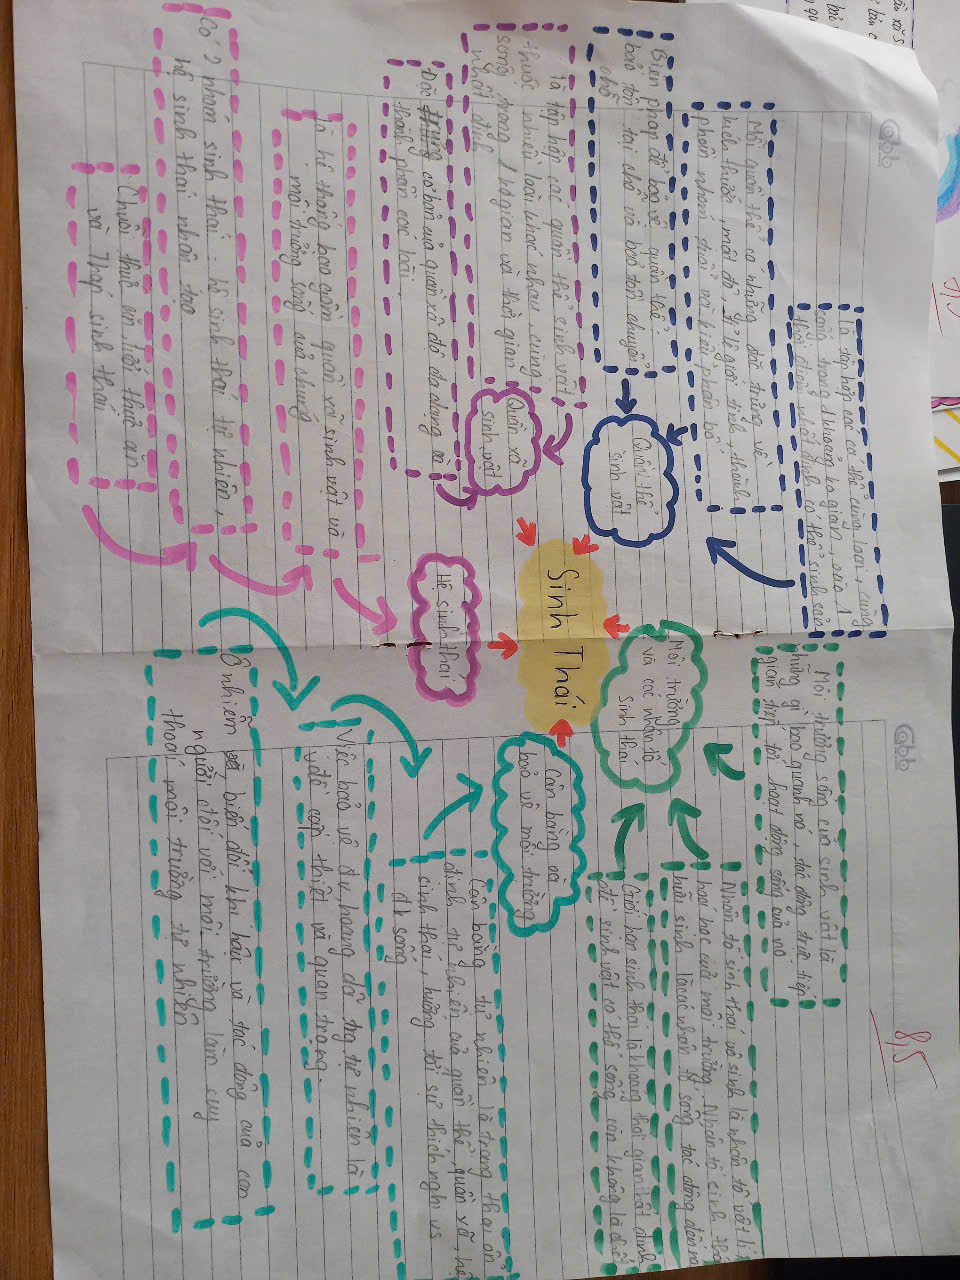 Sinh Thái
Quần thể
sinh vật
Là tập hợp các cá thể cùng loài, cùng
sống trong 1 khoảng ko gian, vào 1
thời điểm nhất định có thể sinh sản
Mỗi quần thể có những đặc trưng về
kích thước, mật độ, tỷ lệ giới tính, thành
phần nhóm tuổi và kiểu phân bố
Biện pháp để bảo vệ quần thể:
bảo tồn tại chỗ và bảo tồn chuyển
chỗ
Quần xã
sinh vật
là tập hợp các quần thể sinh vật
thuộc nhiều loài khác nhau, cùng
sống trong 1 ko gian và thời gian
nhất định
Đặc trưng cơ bản của quần xã độ đa dạng và
thành phần các loài.
Hệ sinh thái
là hệ thống bao gồm quần xã sinh vật và
môi trường sống của chúng
Có 2 nhóm sinh thái: hệ sinh thái tự nhiên,
hệ sinh thái nhân tạo
Chuỗi thức ăn, lưới thức ăn
và Tháp sinh thái
Môi trường
và các nhân tố
sinh thái
Môi trường sống của sinh vật là
những gì bao quanh nó, tác động trực tiếp
gián tiếp tới hoạt động sống của nó
Nhân tố sinh thái vô sinh là nhân tố vật lí
hoá học của môi trường. Nhân tố sinh thái
hữu sinh là các nhân tố sống tác động đến nó
Giới hạn sinh thái là khoảng thời gian nhất định
để sinh vật có thể sống còn không là chết
Cân bằng và
bảo vệ môi trường
Cân bằng tự nhiên là trạng thái ổn
định tự nhiên của quần thể, quần xã, hệ
sinh thái, hướng tới sự thích nghi vs
đk sống
Việc bảo vệ đv hoang dã trg tự nhiên là
vđề cấp thiết và quan trọng.
Ô nhiễm biến đổi khí hậu và tác động của con
người đối với môi trường làm suy
thoái môi trường tự nhiên
8,5